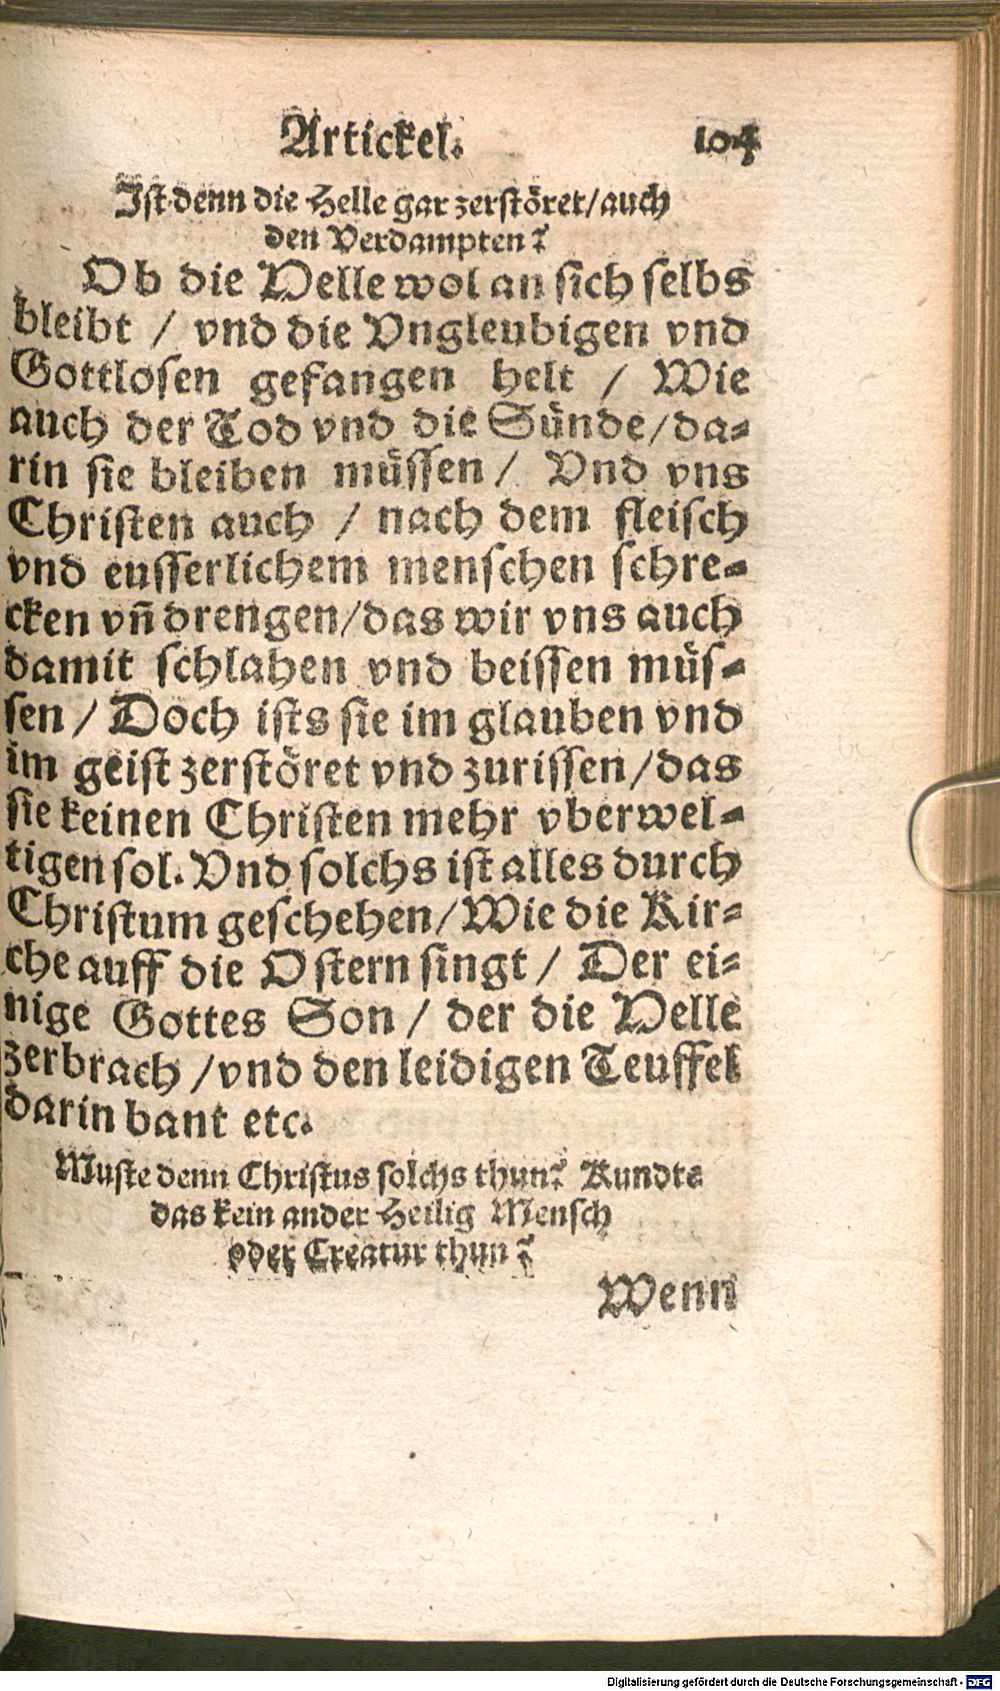 Artickel. 104
Ist denn die Helle gar zerstöret/auch
den Verdampten?
Ob die Helle wol an sich selbs
bleibt / vnd die Vngleubigen vnd
Gottlosen gefangen helt / Wie
auch der Tod vnd die Sünde/da-
rin sie bleiben müssen / Vnd vns
Christen auch / nach dem fleisch
vnd eusserlichem menschen schre-
cken vñ drengen/das wir vns auch
damit schlahen vnd beissen müs-
sen / Doch ists sie im glauben vnd
im geist zerstöret vnd zurissen/das
sie keinen Christen mehr vberwel-
tigen sol. Vnd solchs ist alles durch
Christum geschehen/Wie die Kir-
che auff die Ostern singt / Der ei-
nige Gottes Son / der die Helle
zerbrach /vnd den leidigen Teuffel
darin bant etc.
Muste denn Christus solchs thun? Kundt-
das kein ander Heilig Mensch
oder Creatur thun?
Wenn
Digitalisierung gefördert durch die Deutsche Forschungsgemeinschaft - DFG